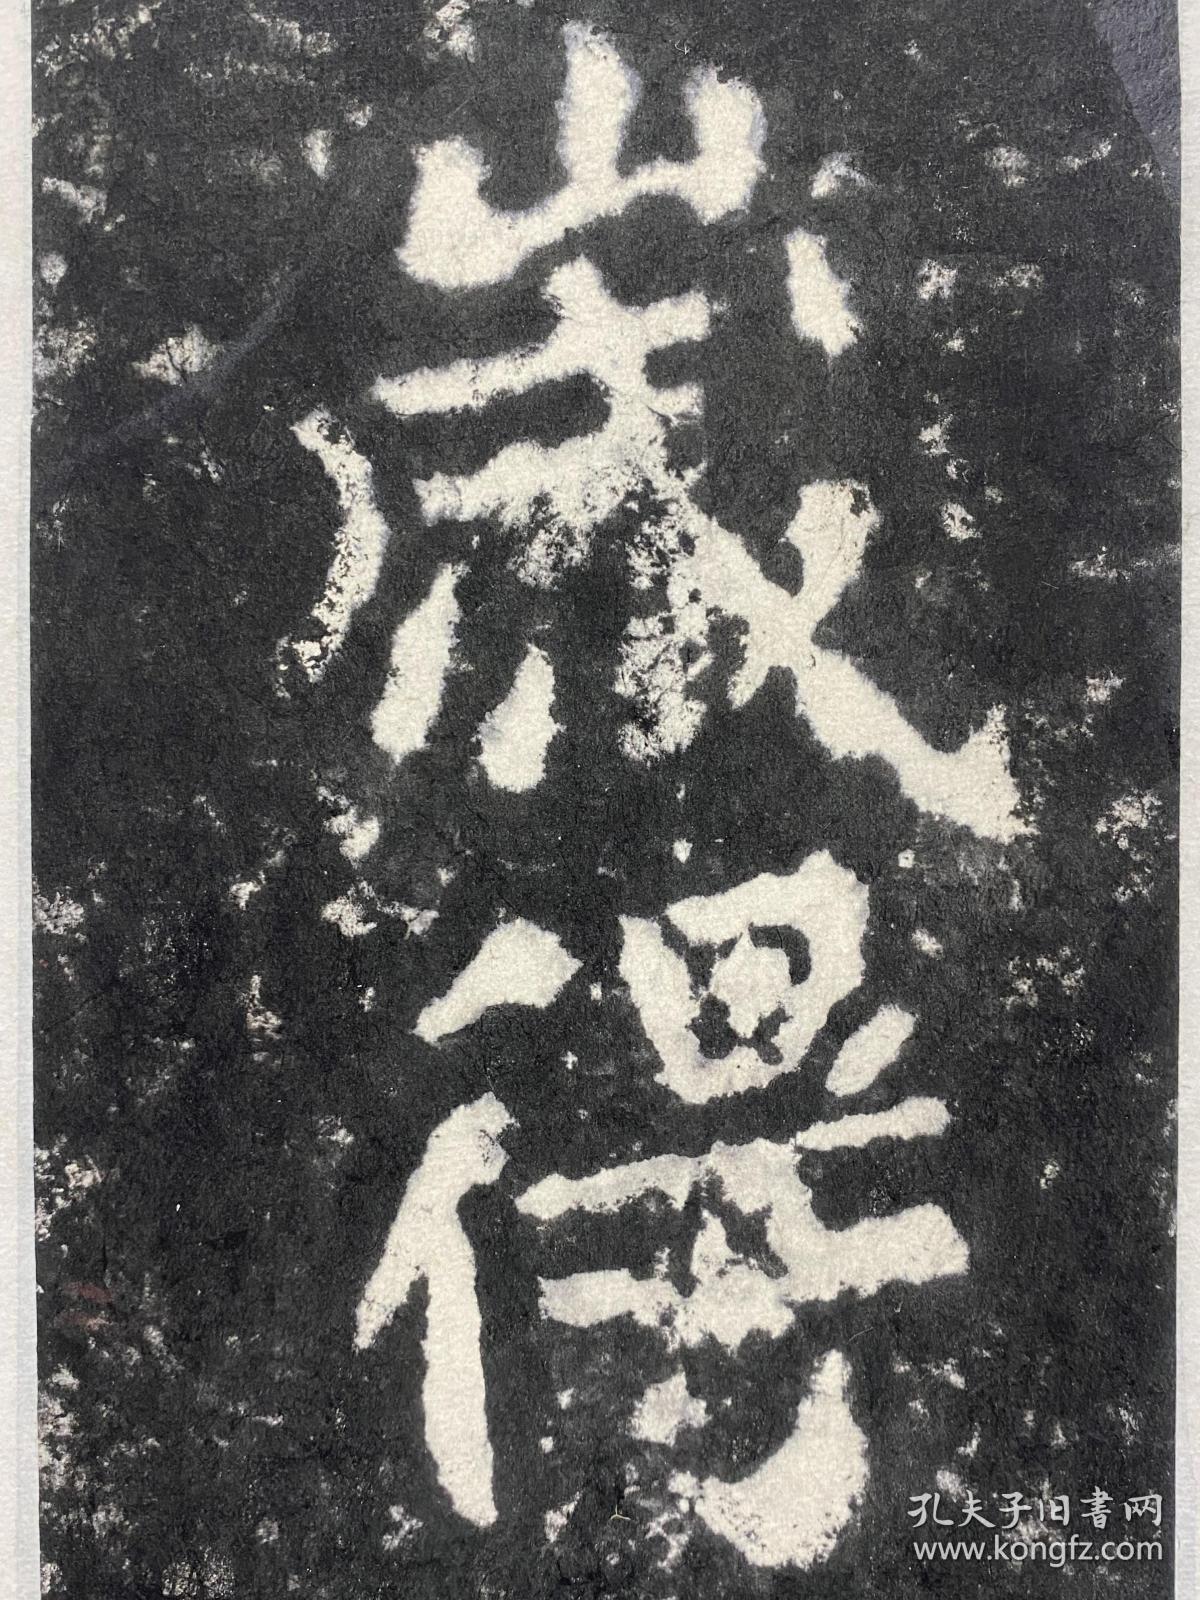 歲得
孔夫子旧書网
www.kongfz.com